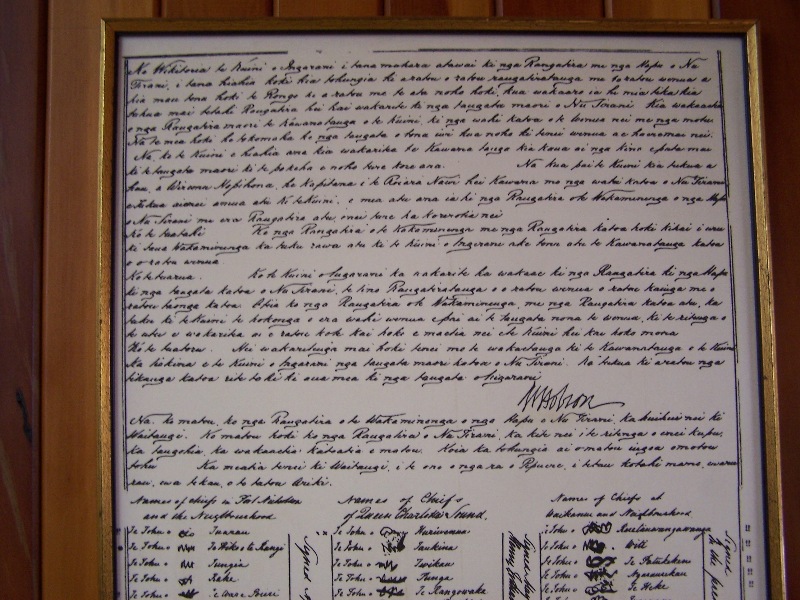 Ko Wikitoria te Kuini o Ingarani i tana mahara atawai ki nga Rangatira me nga Hapu o Nu
Tirani, i tana hiahia hoki kia tohungia ki a ratou o ratou rangatiratanga me to ratou wenua a
kia mau tonu hoki te Rongo ki a ratou me te ata noho hoki, kua wakaaro ia he mea tika kia
tukua mai tetahi Rangatira hei kai wakarite ki nga tangata maori o Nu Tirani Kia wakaaetia
e nga Rangatira maori te Kawanatanga o te Kuini, ki nga wahi katoa o te wenua nei me nga motu
Na te mea hoki he tokomaha ke nga tangata o tona iwi kua noho ki tenei wenua a e haere mai nei.
Na, ko te Kuini e hiahia ana kia wakarite te Kawanatanga kia kaua ai nga kino e puta mai
ki te tangata maori ki te pakeha e noho ture kore ana. Na kua pai te Kuini kia tukua a
hau, a Wiremu Hopihona, he Kapitana i te Roiara Nawi hei Kawana mo nga wahi katoa o Nu Tirani
e tukua aianei amua atu ki te Kuini, e mea atu ana ia ki nga Rangatira o te Wakaminenga o nga Hapu
o Nu Tirani me era Rangatira atu enei ture ka korerotia nei
Ko te tuatahi Ko nga Rangatira o te Wakaminenga me nga Rangatira katoa hoki kihai i uru
ki taua Wakaminenga ka tuku rawa atu ki te Kuini o Ingarani ake tonu atu te Kawanatanga katoa
o o ratou wenua
Ko te tuarua. Ko te Kuini o Ingarani ka wakarite ka wakaae ki nga Rangatira ki nga Hapu
ki nga tangata katoa o Nu Tirani, te tino Rangatiratanga o o ratou wenua o ratou kainga me o
ratou taonga katoa. Otiia ko nga Rangatira o te Wakaminenga, me nga Rangatira katoa atu, ka
tuku ki te Kuini te hokonga o era wahi wenua e pai ai te tangata nona te wenua, ki te ritenga o
te utu e wakaritea ai e ratou ko te kai hoko e meatia nei e te Kuini hei kai hoko mona
Ko te tuatoru. Hei wakaritenga mai hoki tenei mo te wakaaetanga ki te Kawanatanga o te Kuini
Ka tiakina e te Kuini o Ingarani nga tangata maori katoa o Nu Tirani. Ka tukua ki a ratou nga
tikanga katoa rite tahi ki ana mea ki nga tangata o Ingarani
W Hobson
Na, ko matou, ko nga Rangatira o te Wakaminenga o nga Hapu o Nu Tirani, ka huihui nei ki
Waitangi. Ko matou hoki ko nga Rangatira o Nu Tirani, ka kite nei i te ritenga o enei kupu,
ka tangohia, ka wakaaetia katoatia e matou. Koia ka tohungia ai o matou ingoa o matou
tohu Ka meatia tenei ki Waitangi, i te ono o nga ra o Pepuere, i te tau kotahi mano, e waru
rau, e wa tekau, o to tatou Ariki.
Names of chiefs in Port Nicholson and the Neighbourhood
Te Tohu o Tuarau
Te Tohu o Te Hiko te Rangi
Te Tohu o Tungia
Te Tohu o Rake
Te Tohu o
Names of Chiefs of Queen Charlotte Sound.
Te Tohu o
Te Tohu o
Te Tohu o
Te Tohu o Punga
Te Tohu o Te Rangowake
Names of Chiefs at Waikanae and Neighbourhood
Te Tohu o
Te Tohu o Witi
Te Tohu o Te Patukekeno
Te Tohu o
Te Tohu o Te Heke